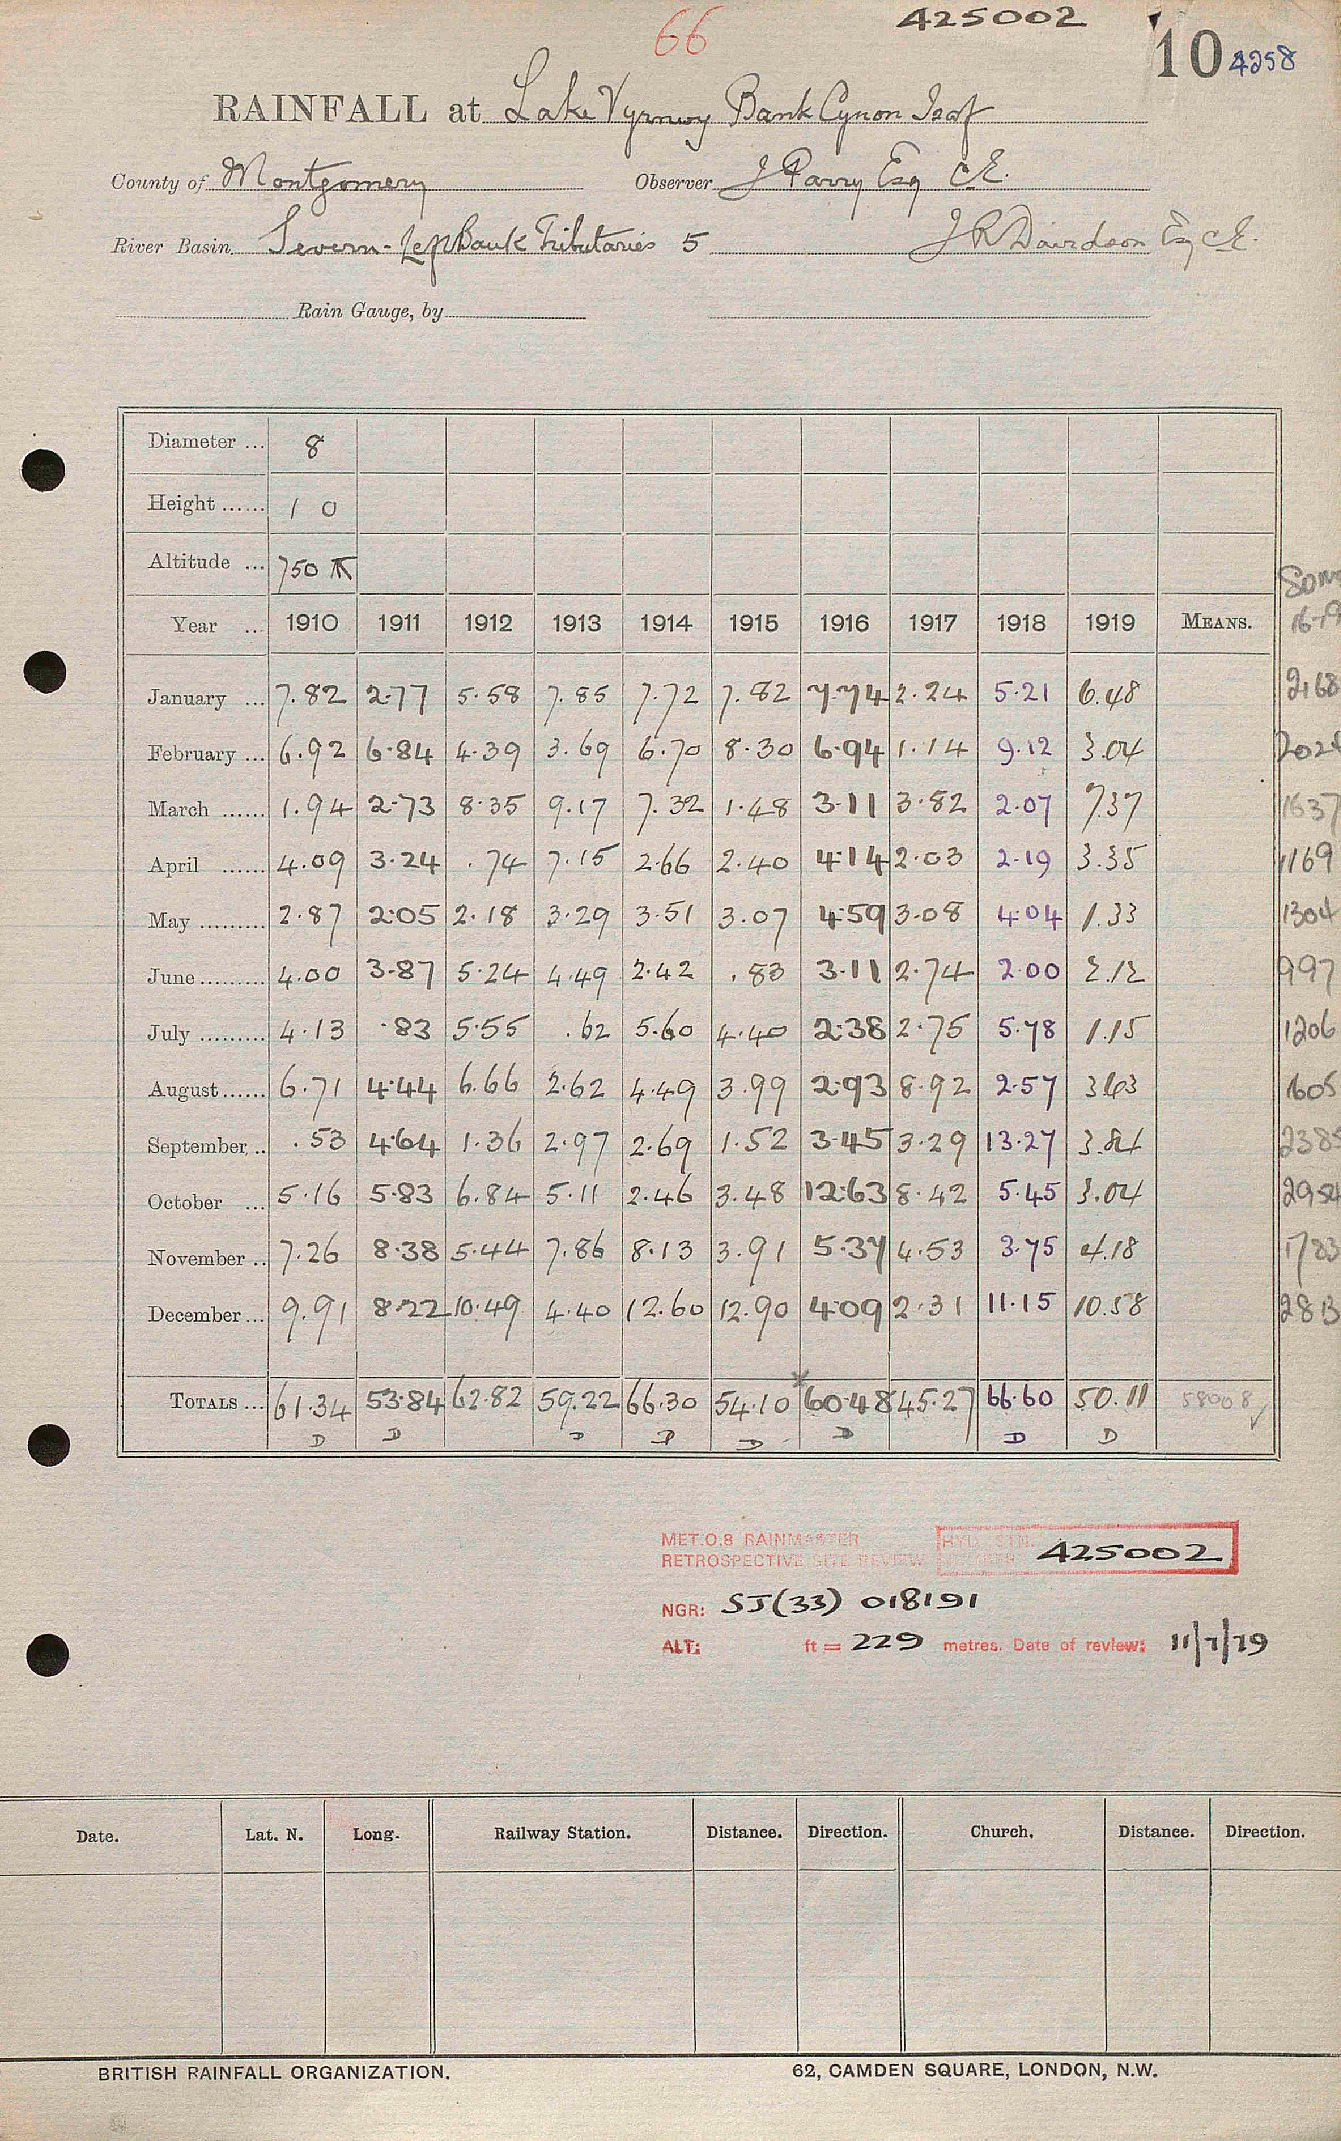 66 425002
10 4258
RAINFALL at Lake Vyrnwy Bank Cynon Isaf
County of Montgomery Observer J Parry Esq C.E.
River Basin Severn - Left Bank Tributaries 5 J R Davidson Esq C.E.
Rain Gauge, by
Diameter ... 8
Height ...... 1 0
Altitude ... 750 ft
Year ... 1910 1911 1912 1913 1914 1915 1916 1917 1918 1919 MEANS. 16-19
January ... 7.82 2.77 5.58 7.85 7.72 7.82 7.74 2.24 5.21 6.48 2168
February ... 6.92 6.84 4.39 3.69 6.70 8.30 6.94 1.14 9.12 3.04 2024
March ...... 1.94 2.73 8.35 9.17 7.32 1.48 3.11 3.82 2.07 7.37 1637
April ...... 4.09 3.24 .74 7.15 2.66 2.40 4.14 2.03 2.19 3.35 1169
May ......... 2.87 2.05 2.18 3.29 3.51 3.07 4.59 3.08 4.04 1.33 1304
June ......... 4.00 3.87 5.24 4.49 2.42 .83 3.11 2.74 2.00 2.12 997
July ......... 4.13 .83 5.55 .62 5.60 4.40 2.38 2.75 5.78 1.15 1206
August ...... 6.71 4.44 6.66 2.62 4.49 3.99 2.93 8.92 2.57 3.63 1805
September .. .53 4.64 1.36 2.97 2.69 1.52 3.45 3.29 13.27 3.84 2385
October ... 5.16 5.83 6.84 5.11 2.46 3.48 12.63 8.42 5.45 3.04 2954
November .. 7.26 8.38 5.44 7.86 8.13 3.91 5.37 4.53 3.75 4.18 1783
December ... 9.91 8.22 10.49 4.40 12.60 12.90 4.09 2.31 11.15 10.58 2813
TOTALS ... 61.34 53.84 62.82 59.22 66.30 54.10 *60.48 45.27 66.60 50.11 58008 ✓
D D D D D D D D
MET.O.8 RAINMASTER
RETROSPECTIVE SITE REVIEW
HYD. STN. 425002
NGR: SJ(33) 018191
ALT: ft = 229 metres. Date of review: 11/7/79
Date. Lat. N. Long. Railway Station. Distance. Direction. Church. Distance. Direction.
BRITISH RAINFALL ORGANIZATION. 62, CAMDEN SQUARE, LONDON, N.W.